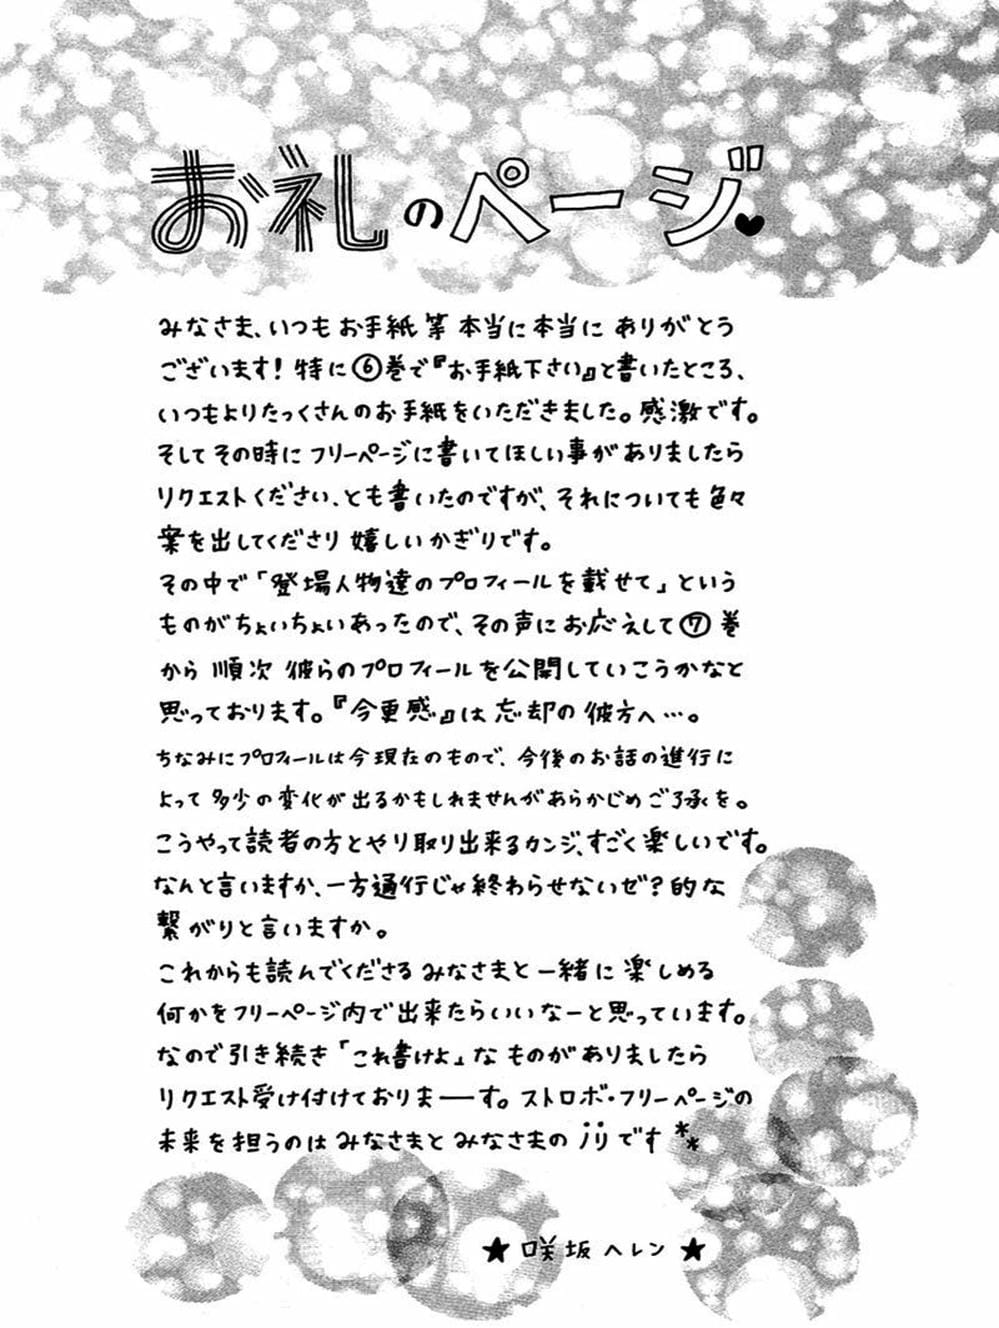 お礼のページ♥
みなさま、いつもお手紙等本当に本当にありがとう
ございます!特に⑥巻で『お手紙下さい』と書いたところ、
いつもよりたっくさんのお手紙をいただきました。感激です。
そしてその時にフリーページに書いてほしい事がありましたら
リクエストください、とも書いたのですが、それについても色々
案を出してくださり嬉しいかぎりです。
その中で「登場人物達のプロフィールを載せて」という
ものがちょいちょいあったので、その声にお応えして⑦巻
から順次彼らのプロフィールを公開していこうかなと
思っております。『今更感』は忘却の彼方へ…。
ちなみにプロフィールは今現在のもので、今後のお話の進行に
よって多少の変化が出るかもしれませんがあらかじめご了承を。
こうやって読者の方とやり取り出来るカンジ、すごく楽しいです。
なんと言いますか、一方通行じゃ終わらせないゼ?的な
繋がりと言いますか。
これからも読んでくださるみなさまと一緒に楽しめる
何かをフリーページ内で出来たらいいなーと思っています。
なので引き続き「これ書けよ」なものがありましたら
リクエスト受け付けておりまーーす。ストロボ・フリーページの
未来を担うのはみなさまとみなさまのjijiです**
★咲坂ヘレン★